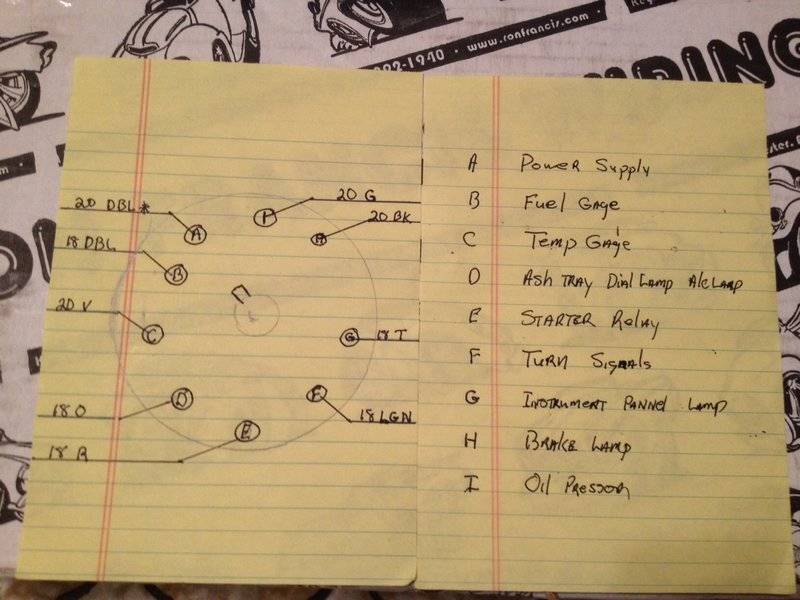 922-1940 · www.ronfrancis.com ·
20 DBL*
A
18 DBL
B
20 V
C
18 O
D
18 R
E
20 G
I
20 BK
H
G
18 T
F
18 LGN
A Power Supply
B Fuel Gage
C Temp Gage
D Ash Tray Dial Lamp A/C Lamp
E STARTER Relay
F TURN Signals
G INSTRUMENT PANNEL Lamp
H BRAKE LAMP
I Oil Pressor